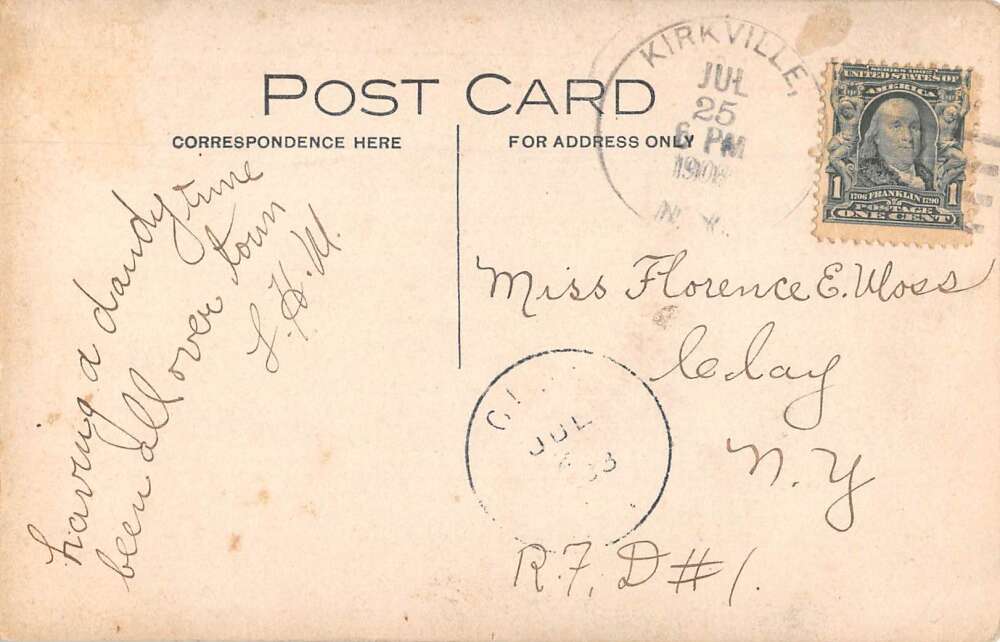 POST CARD
CORRESPONDENCE HERE
FOR ADDRESS ONLY
KIRKVILLE,
JUL
25
6 PM
N.Y.
SERIES 1902
UNITED STATES OF
AMERICA
1706 FRANKLIN 1790
POSTAGE
1 1
ONE CENT
having a dandy time
been all over town
L.H.M.
Miss Florence E. Moss
Clay
N.Y
R.F.D #1.
JUL